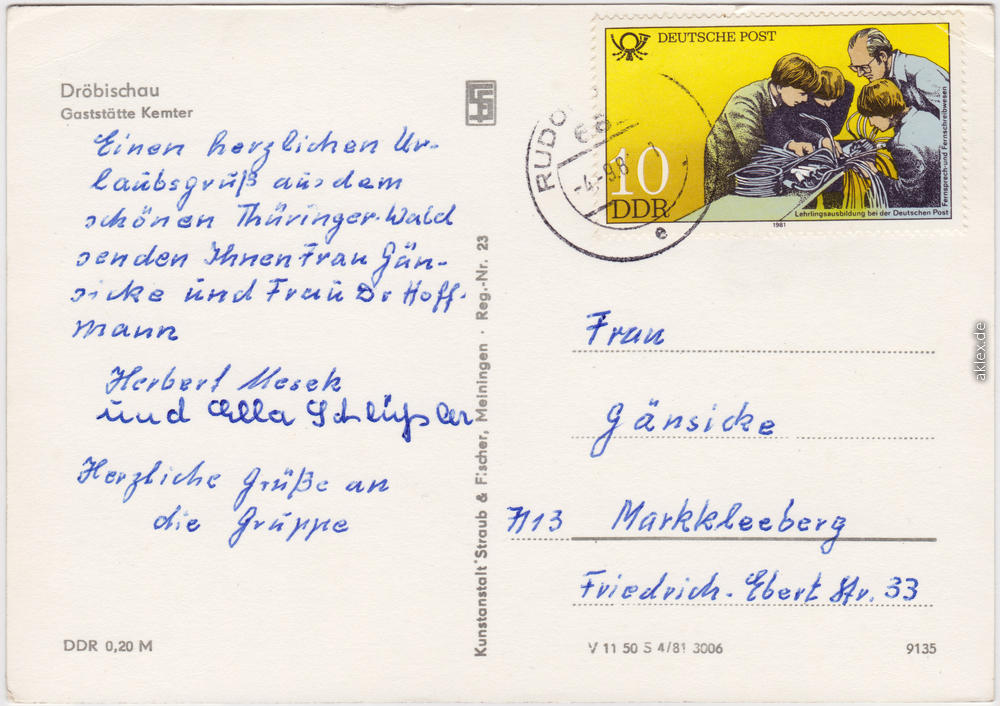 Dröbischau
Gaststätte Kemter
Einen herzlichen Ur-
laubsgruß aus dem
schönen Thüringer-Wald
senden Ihnen Frau Gän-
sicke und Frau Dr Hoff-
mann
Herbert Mesek
und Ella Schlüßler
Herzliche Grüße an
die Gruppe
DDR 0,20 M
Kunstanstalt Straub & Fischer, Meiningen · Reg.-Nr. 23
DEUTSCHE POST
10
DDR
Lehrlingsausbildung bei der Deutschen Post
Fernsprech-und Fernschreibwesen
1981
RUDO
68
-4.-9.8
e
Frau
Gänsicke
7113 Markkleeberg
Friedrich-Ebert Str. 33
V 11 50 S 4/81 3006
9135
aklex.de